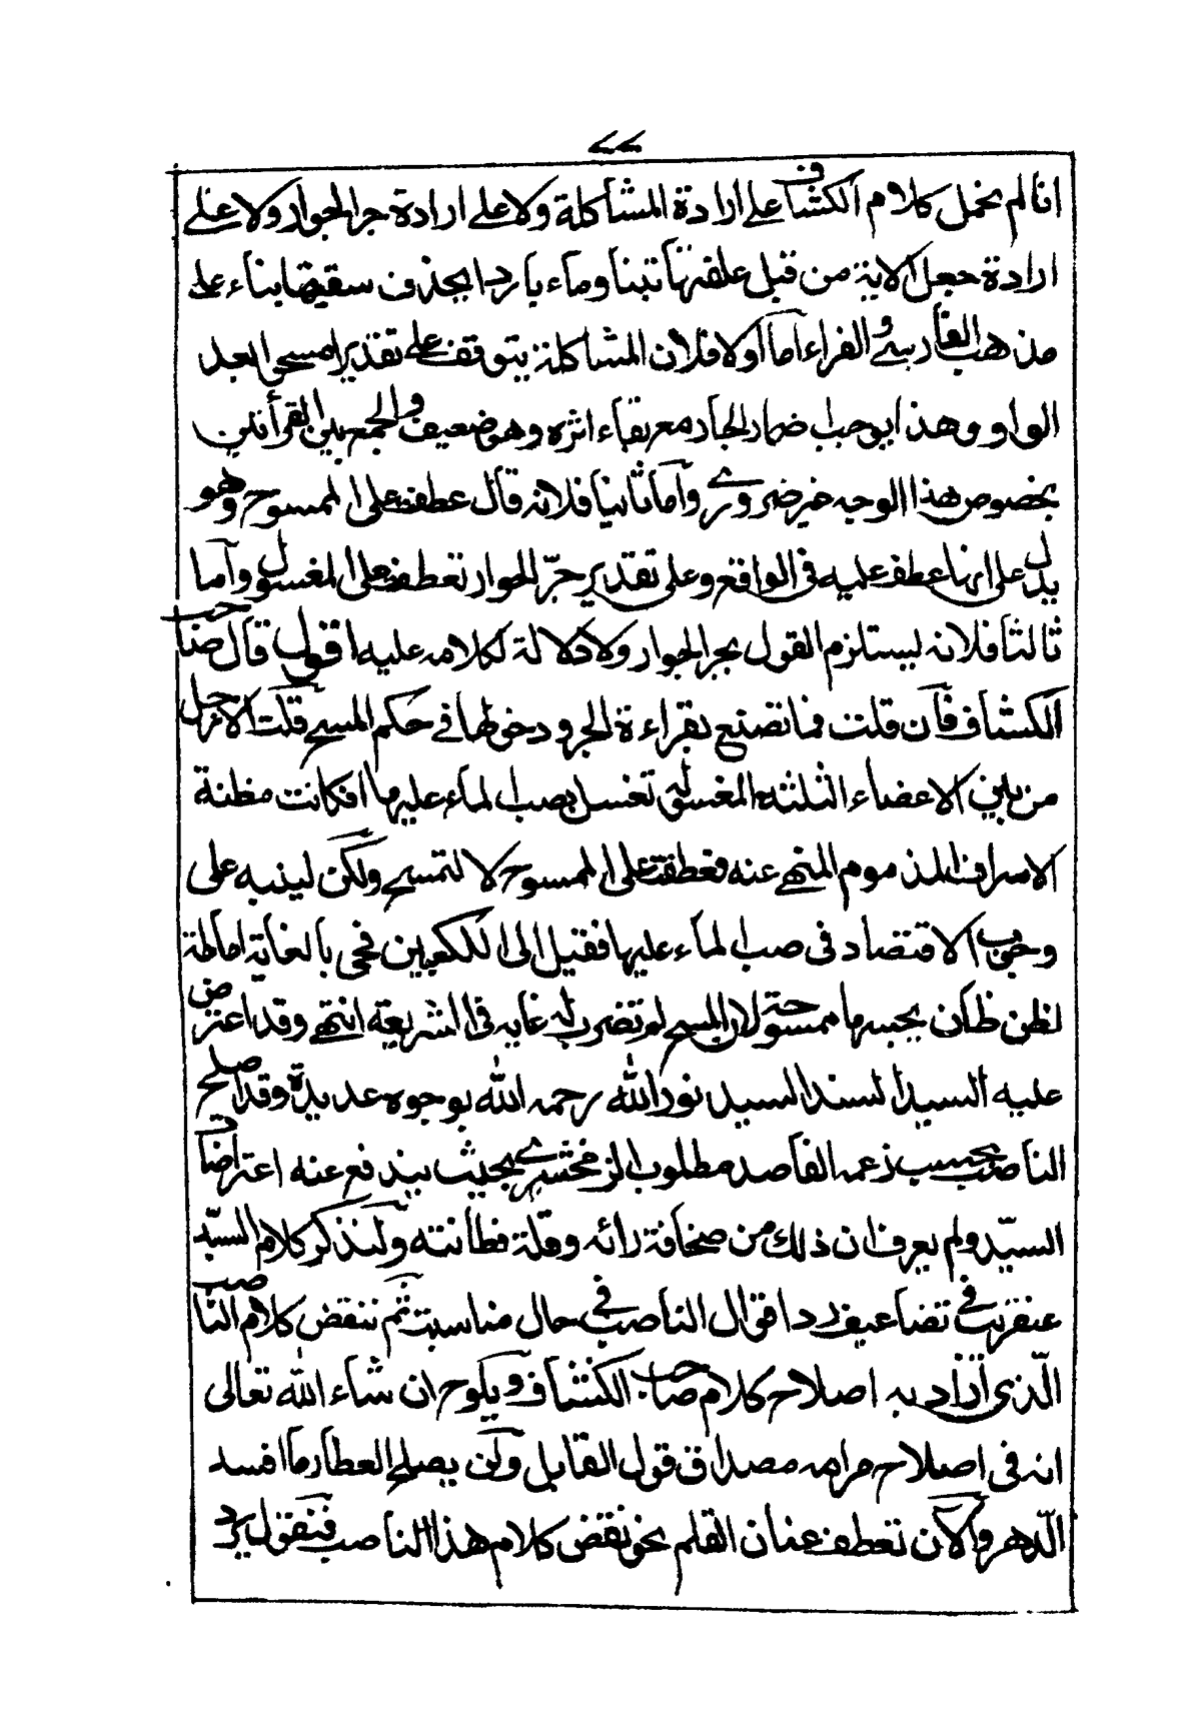 ٧٧
انا لم نحمل كلام الكشاف على ارادة المشاكلة ولا على ارادة جر الجوار ولا على
ارادة جعل الاية من قبيل علفتها تبنا وماء باردا بحذف سقيتها بناء على
مذهب الفارسي و الفراء اما اولا فلان المشاكلة يتوقف على تقدير امسحوا بعد
الواو وهذا يوجب اضمار الجار مع بقاء اثره وهو ضعيف والجمع بين القرأتين
بخصوص هذا الوجه غير ضروري واما ثانيا فلانه قال عطفت على الممسوح وهو
يدل على انها عطف عليه في الواقع وعلى تقدير جرّ للجوار تعطف على المغسول واما
ثالثا فلانه يستلزم القول بجر الجوار ولا دلالة لكلامه عليه اقول قال صاحب
الكشاف فان قلت فما تصنع بقراءة الجر ودخولها في حكم المسح قلت الارجل
من بين الاعضاء الثلثه المغسولة تغسل بصب الماء عليها فكانت مظنة
الاسراف المذموم المنهي عنه فعطفت على الممسوح لا لتمسح ولكن لينبه على
وجوب الاقتصاد في صب الماء عليها فقيل الى الكعبين فجئ بالغاية اماطة
لظن ظان يحسبها ممسوحة لان المسح لم تضرب له غاية في الشريعة انتهى وقد اعترض
عليه السيد السند السيد نور الله رحمه الله بوجوه عديدة وقد اصلح
الناصب بحسب زعمه الفاسد مطلوب الزمخشري بحيث يندفع عنه اعتراضات
السيّد ولم يعرف ان ذلك من سخافة رائه وقلة فطانته ولنذكر كلام السيّد
عنقريب في تضاعيف رد اقوال الناصب في حال مناسبت ثم ننقض كلام الناصب
الّذي اراد به اصلاح كلام صاحب الكشاف ويلوح ان شاء الله تعالى
انه في اصلاح مرامه مصداق قول القايل ولن يصلح العطار ما افسد
الّدهر والآن نعطف عنان القلم نحو نقض كلام هذا الناصب فنقول يرد